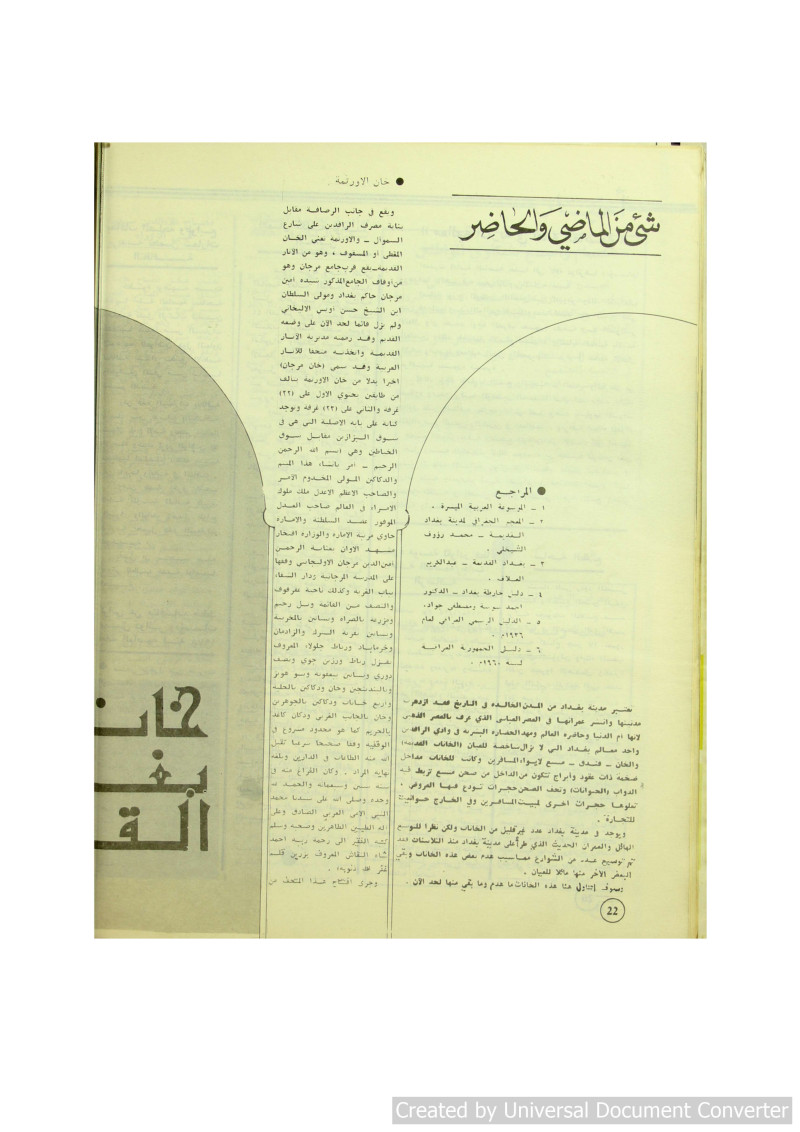 شئ من الماضي والحاضر
● المراجع
١ - الموسوعة العربية الميسرة .
٢ - المعجم الجغرافي لمدينة بغداد
القديمة - محمد رؤوف
الشيخلي .
٣ - بغداد القديمة - عبدالكريم
العلاف .
٤ - دليل خارطة بغداد - الدكتور
احمد سوسة ومصطفى جواد .
٥ - الدليل الرسمي العراقي لعام
١٩٣٦م .
٦ - دليل الجمهورية العراقية
لسنة ١٩٦٠م .
تعتبر مدينة بغداد من المدن الخالدة في التاريخ فقد ازدهرت
مدنيتها واتسع عمرانها في العصر العباسي الذي عرف بالعصر الذهبي
لانها ام الدنيا وحاضرة العالم ومهد الحضارة البشرية في وادي الرافدين
واحد معالم بغداد التي لا تزال شاخصة للعيان (الخانات القديمة)
والخان - فندق - مع لايواء المسافرين وكانت للخانات مداخل
ضخمة ذات عقود وأبراج تتكون من الداخل من صحن تربط فيه
الدواب (الحيوانات) وتحف الصحن حجرات تودع فيها العروض .
تعلوها حجرات اخرى لمبيت المسافرين وفي الخارج حوانيت
للتجارة .
ويوجد في مدينة بغداد عدد غير قليل من الخانات ولكن نظرا للتوسع
الهائل والعمران الحديث الذي طرأ على مدينة بغداد منذ الثلاثينات فقد
تم توسيع عدد من الشوارع هدم بعض هذه الخانات وبقي
البعض الآخر منها ماثلا للعيان .
وسوف نتناول هنا هذه الخانات ما هدم وما بقي منها لحد الآن .
● خان الاورتمة
ويقع في جانب الرصافة مقابل
بناية مصرف الرافدين على شارع
السموأل - والاورتمة تعني الخان
المغطى أو المسقوف ، وهو من الآثار
القديمة يقع قرب جامع مرجان وهو
من أوقاف الجامع المذكور شيده امين
مرجان حاكم بغداد ومولى السلطان
ابن الشيخ حسن اويس الايلخاني
ولم يزل قائما لحد الآن على وضعه
القديم وقد رممته مديرية الآثار
القديمة واتخذته متحفا للآثار
العربية وقد سمي (خان مرجان)
اخيرا بدلا من خان الاورتمة يتألف
من طابقين يحتوي الاول على (٢٢)
غرفة والثاني على (٢٣) غرفة وتوجد
كتابة على بابه الاصلية التي هي في
سوق البزازين مقابل سوق
الخياطين وهي (بسم الله الرحمن
الرحيم - امر بانشاء هذا التيم
والدكاكين المولى المخدوم الامير
والصاحب الاعظم الاعدل ملك ملوك
الامراء في العالم صاحب العدل
الموفور عضد السلطنة والامارة
حاوي مرتبة الامارة والوزارة افتخار
الاوان بعناية الرحمن
امين الدين مرجان وقفها
على المدرسة المرجانية ودار الشفاء
بباب الغربة وكذلك ناحية عقرقوف
والنصف من القائمة وتل رحيم
ومزرعة بالصراة وبساتين بالمخرمية
وبساتين بقرية البزل والزادمان
ورباط جلولاء المعروف
بقزل رباط
دوري وبساتين ببعقوبة
وبالبندنيجين وخان ودكاكين بالحلبة
واربع خانات ودكاكين بالجوهريين
وخان بالجانب الغربي ودكان كاغد
بالحريم كما هو محدود مشروح في
الوقفية وقفا صحيحا شرعيا تقبل
الله منه الطاعات في الدارين وبلغه
نهاية المراد . وكان الفراغ منه في
سنة ستين وسبعمائة والحمد لله
وحده وصلى الله على سيدنا محمد
النبي الامي العربي الصادق وعلى
آله الطيبين الطاهرين وصحبه وسلم
كتبه الفقير الى رحمة ربه احمد
شاه النقاش المعروف بزرين قلم
غفر الله ذنوبه) .
وجرى افتتاح هذا المتحف من
خان
بغ
القـ
22
Created by Universal Document Converter